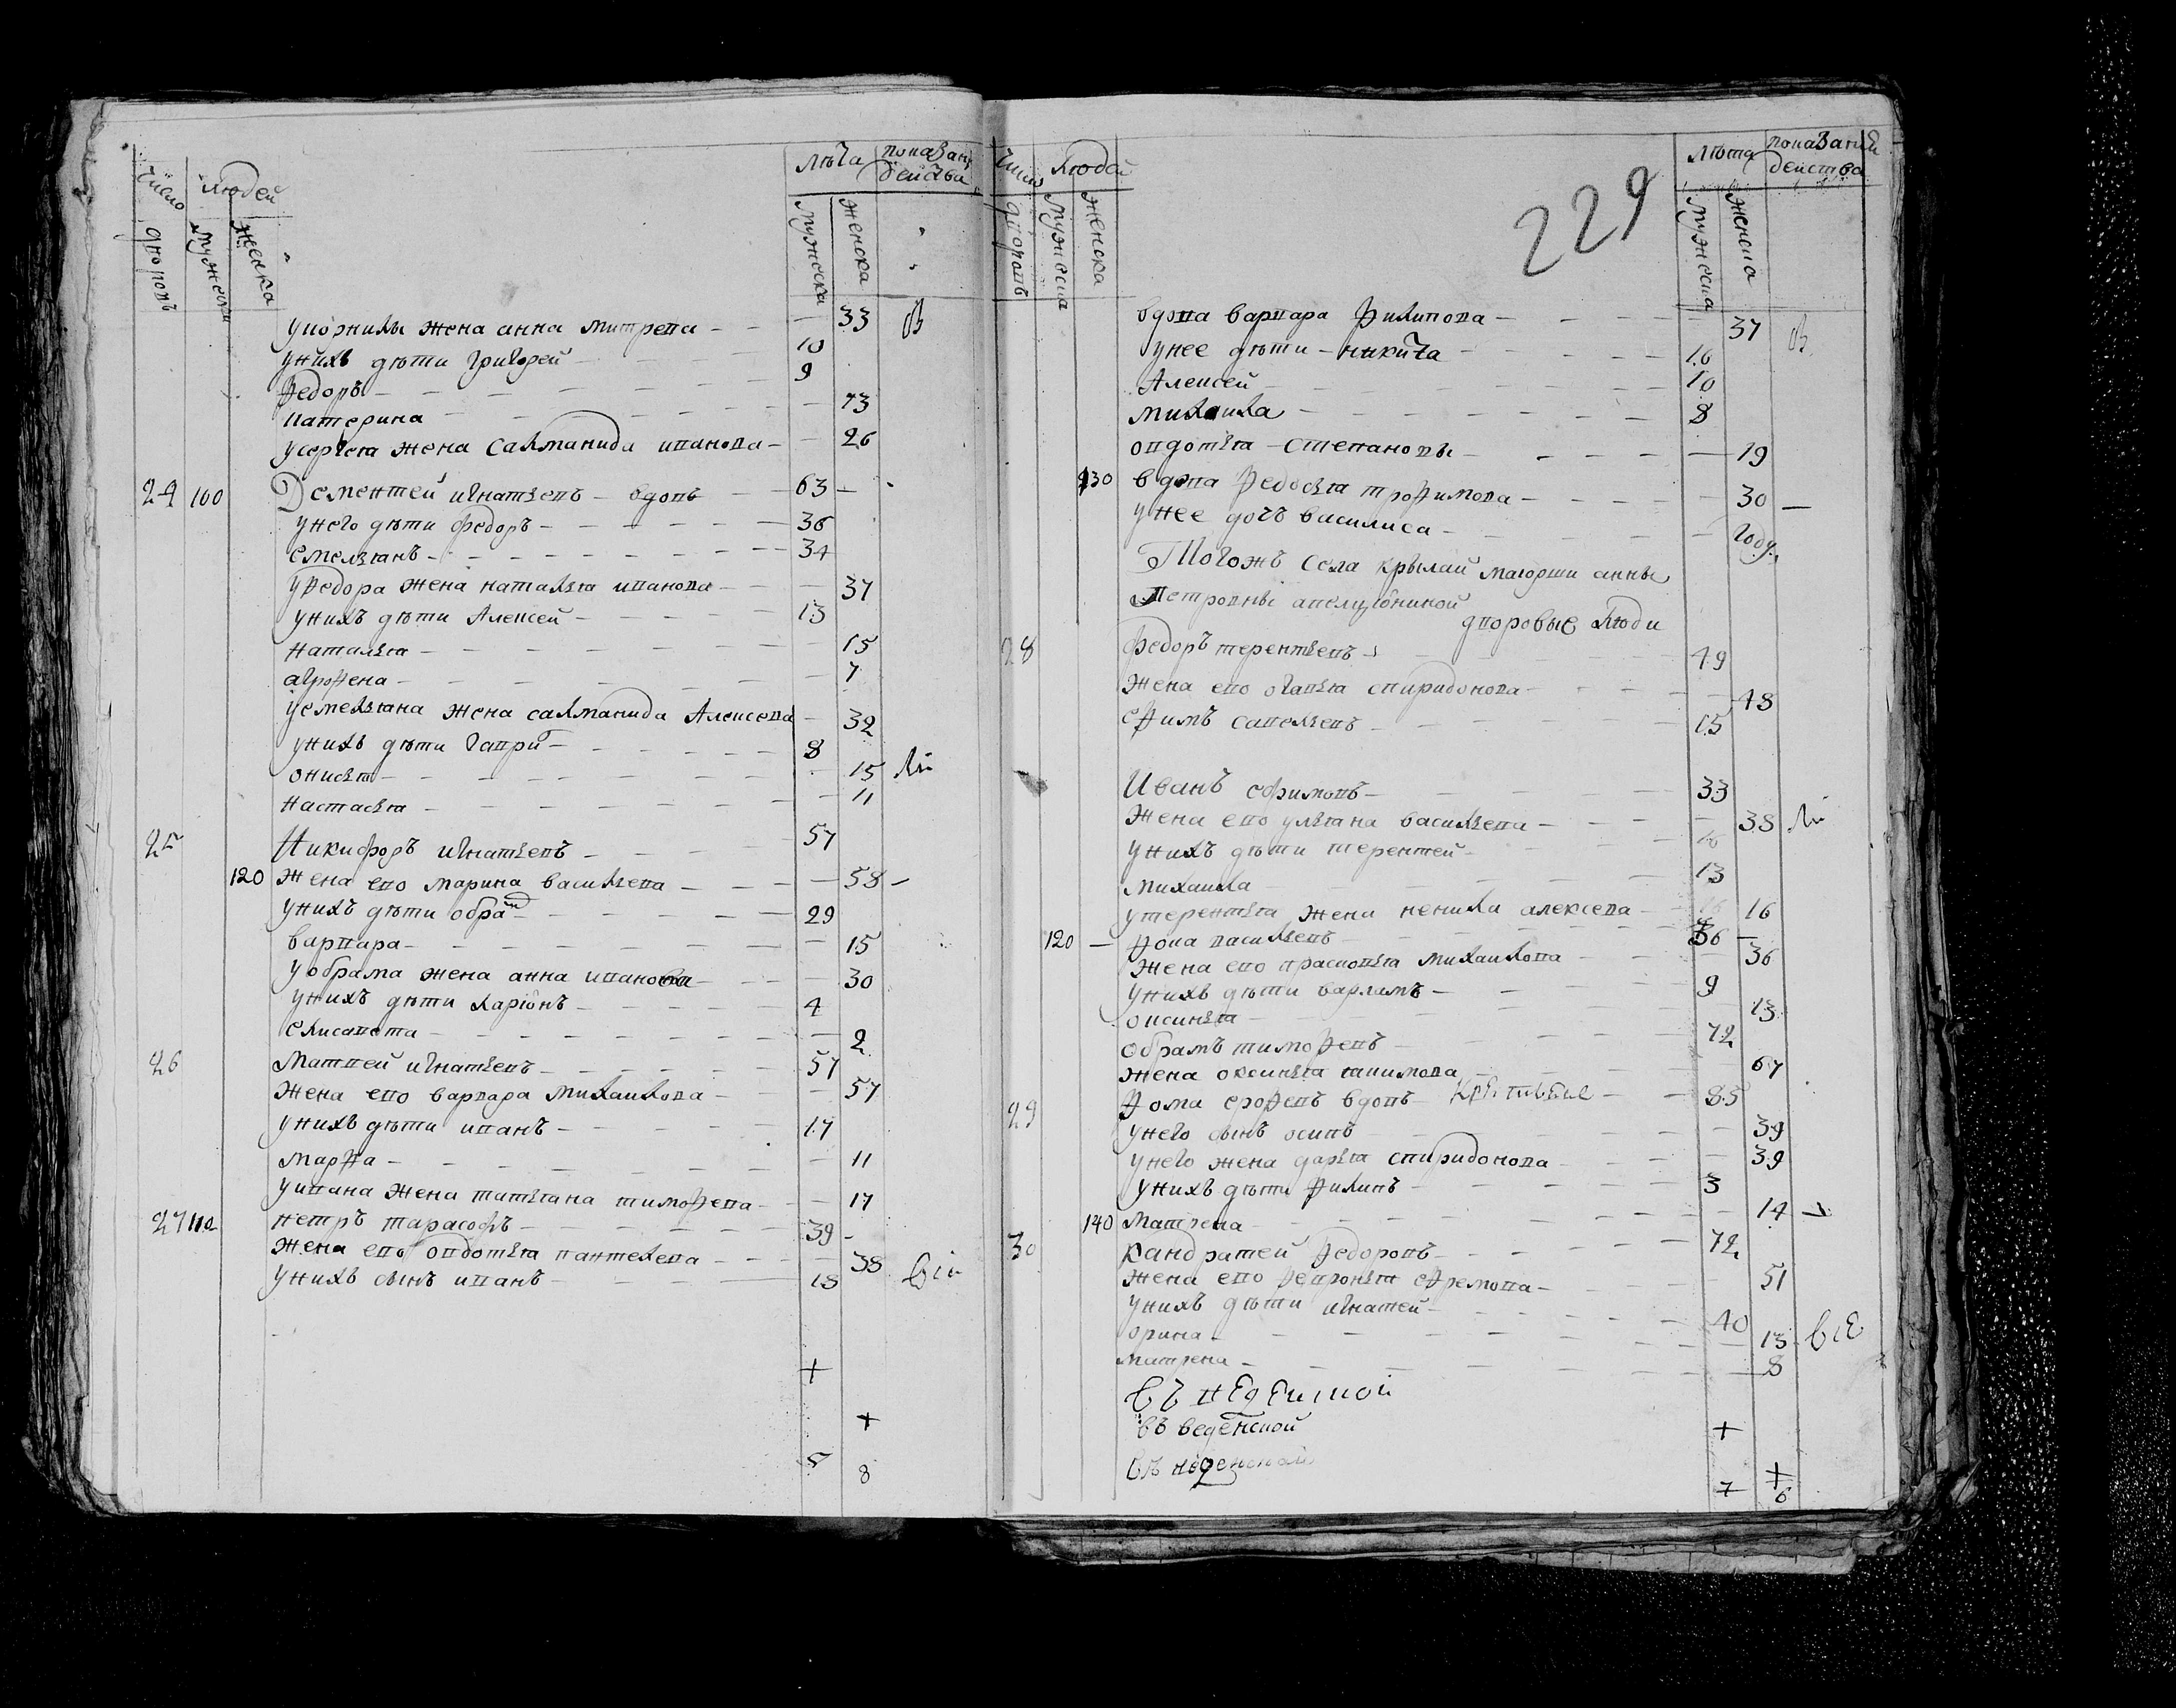 число дворовъ людей мужеска женска лѣта мужеска женска показани действа
укорнилы жена анна митрева 33
унихъ дѣти григорей 10
федоръ 9
катерина 13
усергея жена салманида иванова 26
24 100 Дементей игнатьевъ вдовъ 63
унего дѣти федоръ 36
емельянъ 34
уфедора жена наталья иванова 37
унихъ дѣти Алексей 13
наталья 15
агрофена 7
уемельяна жена салманида Алексева 32
унихъ дѣти гаври 8
онисья 15
настасья 11
25 Никифоръ игнатьевъ 57
120 жена ево марина васильева 58
унихъ дѣти обрам 29
варвара 15
уобрама жена анна иванова 30
унихъ дѣти ларионъ 4
елисавета 2
26 Матвей игнатьевъ 57
жена ево варвара михаилова 57
унихъ дѣти иванъ 17
марфа 11
уивана жена татьяна тимофева 17
27 петръ тарасофъ 39
жена ево овдотья пантелева 38
унихъ сынъ иванъ 18
+
+
5 8
229
число дворовъ людей мужеска женска лѣта мужеска женска показаней действа
вдова варвара филипова 37
унее дѣти никита 16
Алексей 10
михаила 8
овдотья степановы 19
130 вдова федосья трофимова 30
унее дочь василиса году
Тогожъ села крылай маіорши анны
петровны
дворовые люди
28 федоръ терентьевъ 49
жена ево агапья спиридонова 48
ефимъ савельевъ 15
Иванъ ефимовъ 33
жена ево ульяна васильева 38
унихъ дѣти терентей 16
михаила 13
утерентья жена ненила алексева 16
120 фока васильевъ 36
жена ево прасковья михаилова 36
унихъ дѣти варламъ 9
оксинья 13
обрамъ тимофевъ 72
жена оксинья 67
29 фома ерофевъ вдовъ 85
унего сынъ осипъ 39
унего жена дарья спиридонова 39
унихъ дѣти филипъ 3
140 матрена 14
30 кандратей федоровъ 72
жена ево февронья ефремова 51
унихъ дѣти игнатей 10
орина 13
матрена 8
въ веденской +
+
7 6